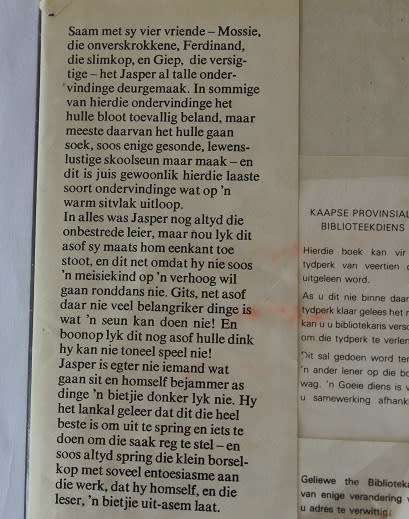 Saam met sy vier vriende – Mossie,
die onverskrokkene, Ferdinand,
die slimkop, en Giep, die versig-
tige – het Jasper al talle onder-
vindinge deurgemaak. In sommige
van hierdie ondervindinge het
hulle bloot toevallig beland, maar
meeste daarvan het hulle gaan
soek, soos enige gesonde, lewens-
lustige skoolseun maar maak – en
dit is juis gewoonlik hierdie laaste
soort ondervindinge wat op 'n
warm sitvlak uitloop.
In alles was Jasper nog altyd die
onbestrede leier, maar nou lyk dit
asof sy maats hom eenkant toe
stoot, en dit net omdat hy nie soos
'n meisiekind op 'n verhoog wil
gaan ronddans nie. Gits, net asof
daar nie veel belangriker dinge is
wat 'n seun kan doen nie! En
boonop lyk dit nog asof hulle dink
hy kan nie toneel speel nie!
Jasper is egter nie iemand wat
gaan sit en homself bejammer as
dinge 'n bietjie donker lyk nie. Hy
het lankal geleer dat dit die heel
beste is om uit te spring en iets te
doen om die saak reg te stel – en
soos altyd spring die klein borsel-
kop met soveel entoesiasme aan
die werk, dat hy homself, en die
leser, 'n bietjie uit-asem laat.
KAAPSE PROVINSIAL
BIBLIOTEEKDIENS
Hierdie boek kan vir
tydperk van veertien
uitgeleen word.
As u dit nie binne daar
tydperk klaar gelees het
kan u u bibliotekaris
om die tydperk te
Dit sal gedoen word
'n ander lener op die
wag. 'n Goeie diens is
u samewerking
Geliewe the
van enige verandering
u adres te verwittig.